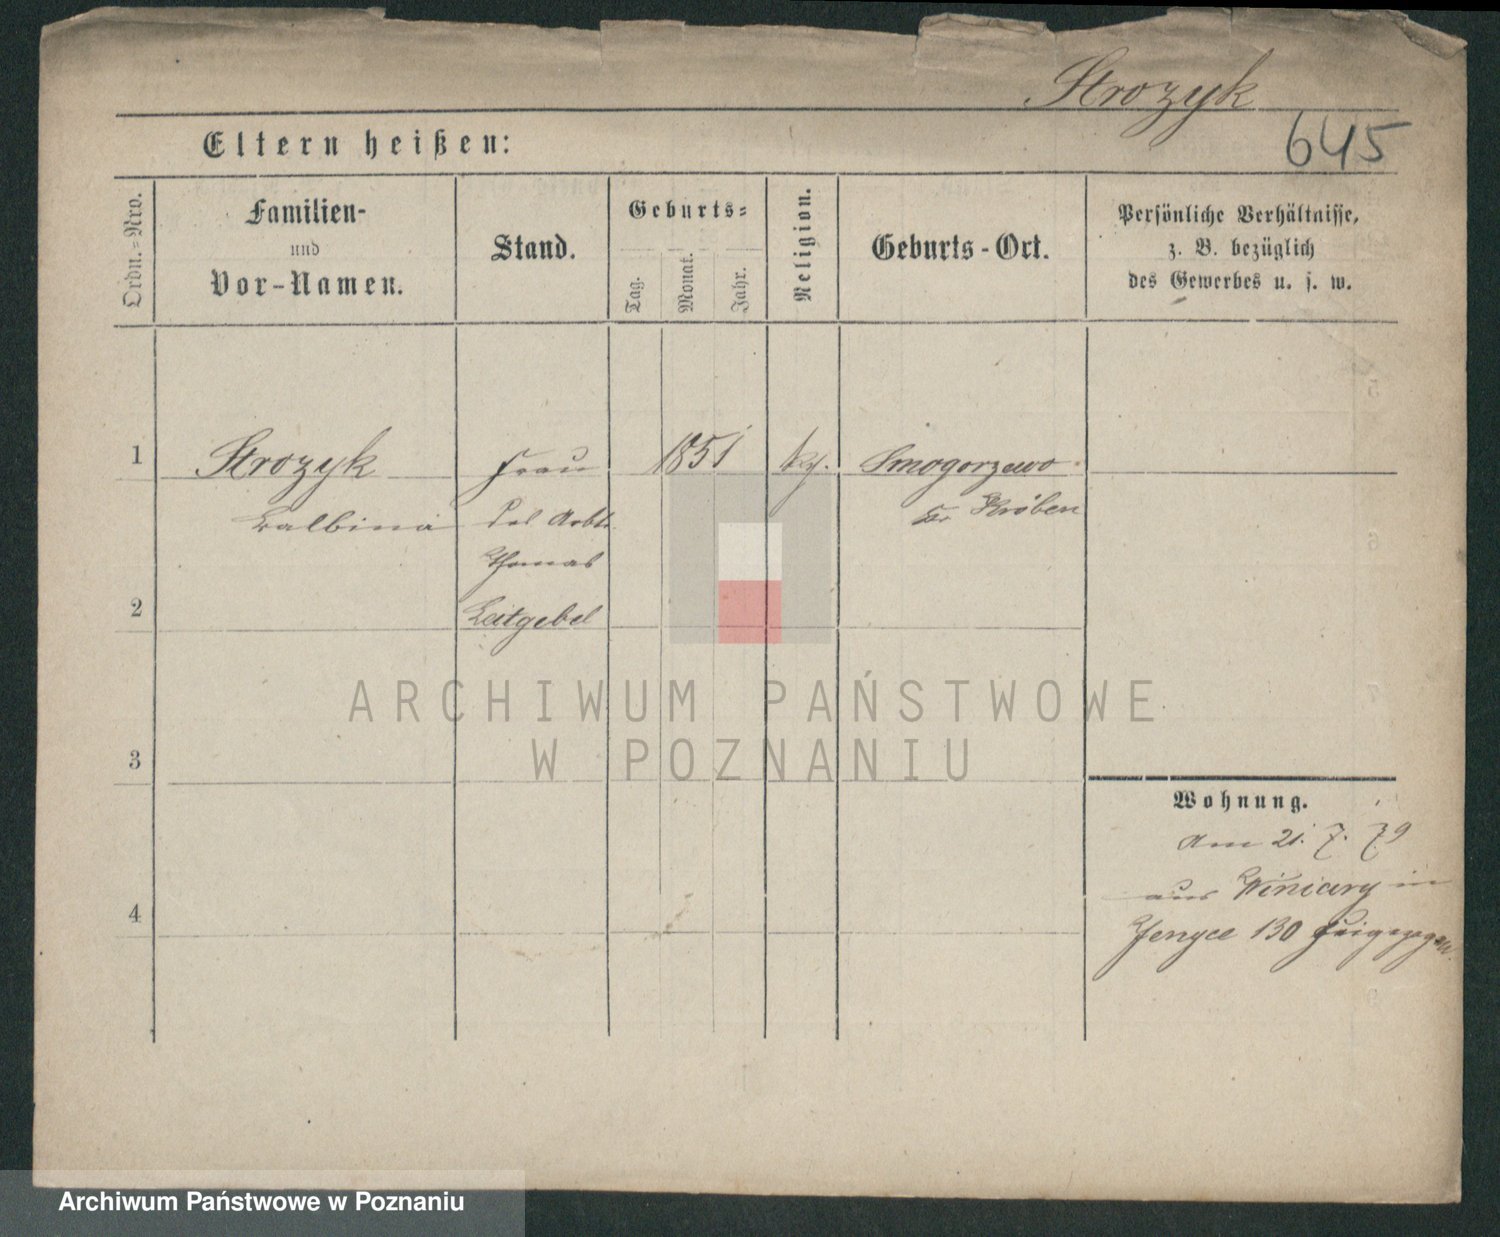 Strozyk
645
Eltern heißen:
Ordn.=Nro.
Familien-
und
Vor-Namen.
Stand.
Geburts=
Tag.
Monat.
Jahr.
Religion.
Geburts-Ort.
Persönliche Verhältnisse,
z. B. bezüglich
des Gewerbes u. s. w.
1
Strozyk
Frau
1851
Smogorzewo
Balbina
Kr Kröben
Thomas
2
Leitgebel
ARCHIWUM PAŃSTWOWE
W POZNANIU
3
Wohnung.
Am 21. 7. 79
aus Winiary in
4
Jerzyce 130
Archiwum Państwowe w Poznaniu